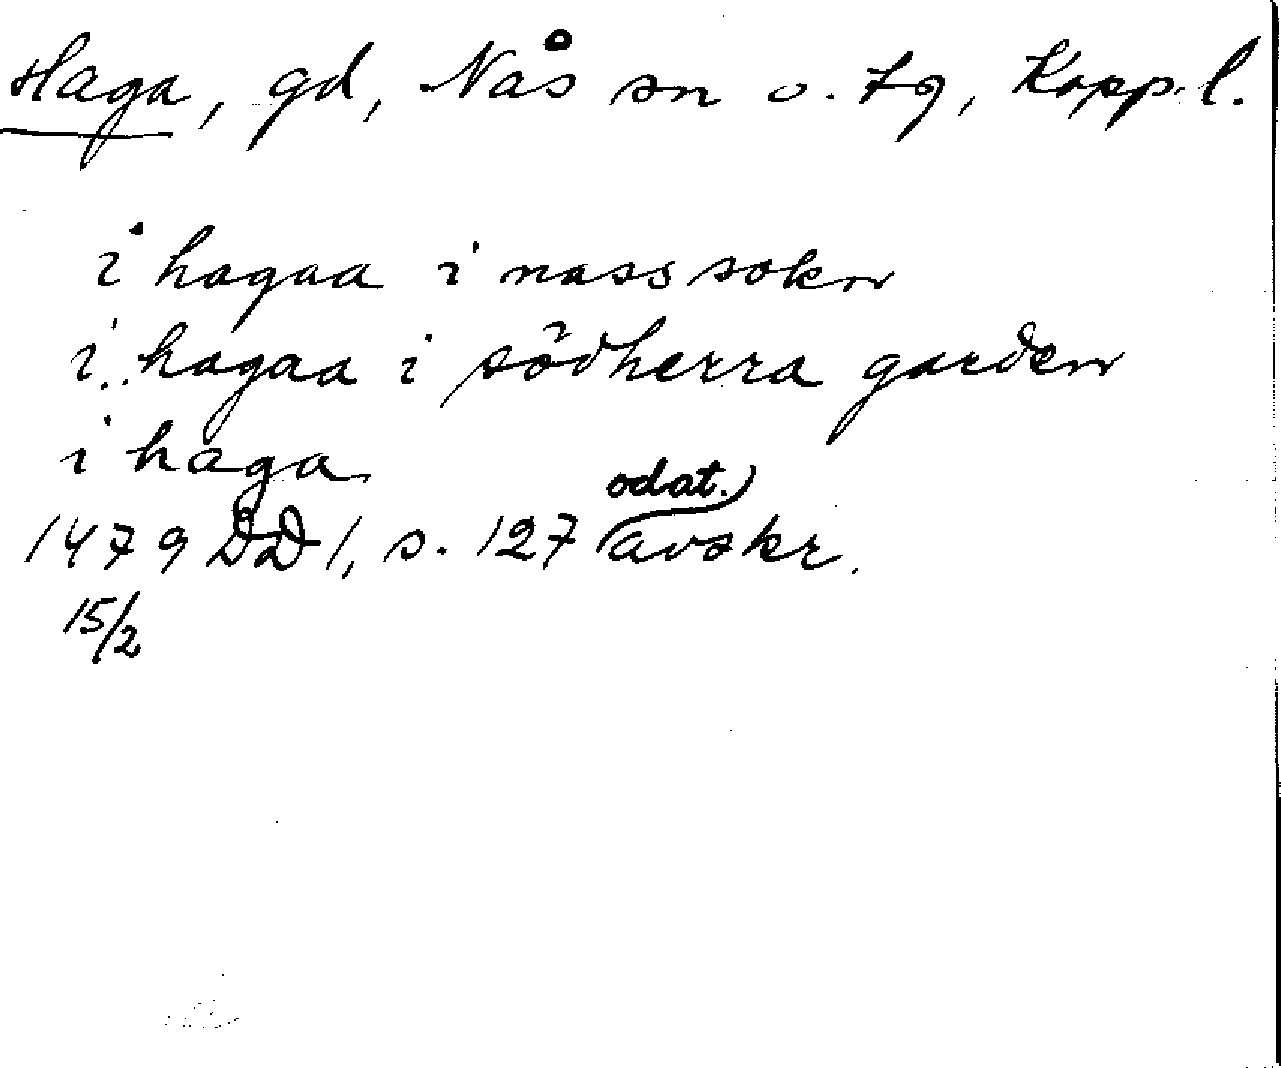 Haga, gd, Nås sn o. tg, Kopp. l.
i hagaa i nass sokn
i hagaa i södherra garden
i haga
odat.
1479 DD 1, s. 127 avskr.
15/2